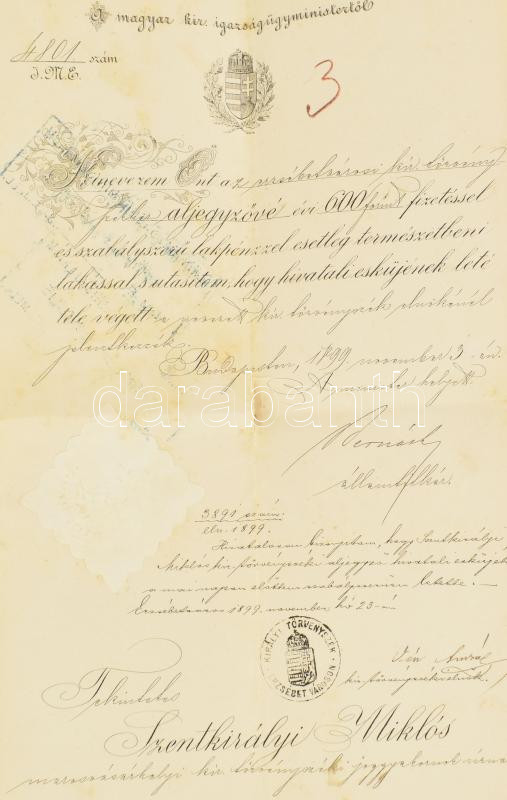 A magyar kir. igazságügyministertől
4801. szám
I.M.E.
3
Kinevezem Önt az erzsébetvárosi kir. törvény
székhez aljegyzővé évi 600 forint fizetéssel
és szabályszerű lakpénzzel esetleg természetbeni
lakással s utasítom, hogy hivatali esküjének leté
tele végett a nevezett kir. törvényszék elnökénél
jelentkezzék.
Budapesten, 1899. november 3-án.
A minister helyett
államtitkár.
3891 szám.
eln. 1899.
Hivatalosan bizonyítom, hogy Szentkirályi
Miklós kir. törvényszéki aljegyző hivatali esküjét
a mai napon előttem szabályszerűen letette. –
Erzsébetváros 1899. november hó 23-án
KIRÁLYI TÖRVÉNYSZÉK
ERZSÉBETVÁROSON
kir. törvényszéki elnök.
Tekintetes
Szentkirályi Miklós
marosvásárhelyi kir. törvényszéki joggyakornok úrnak
darabanth